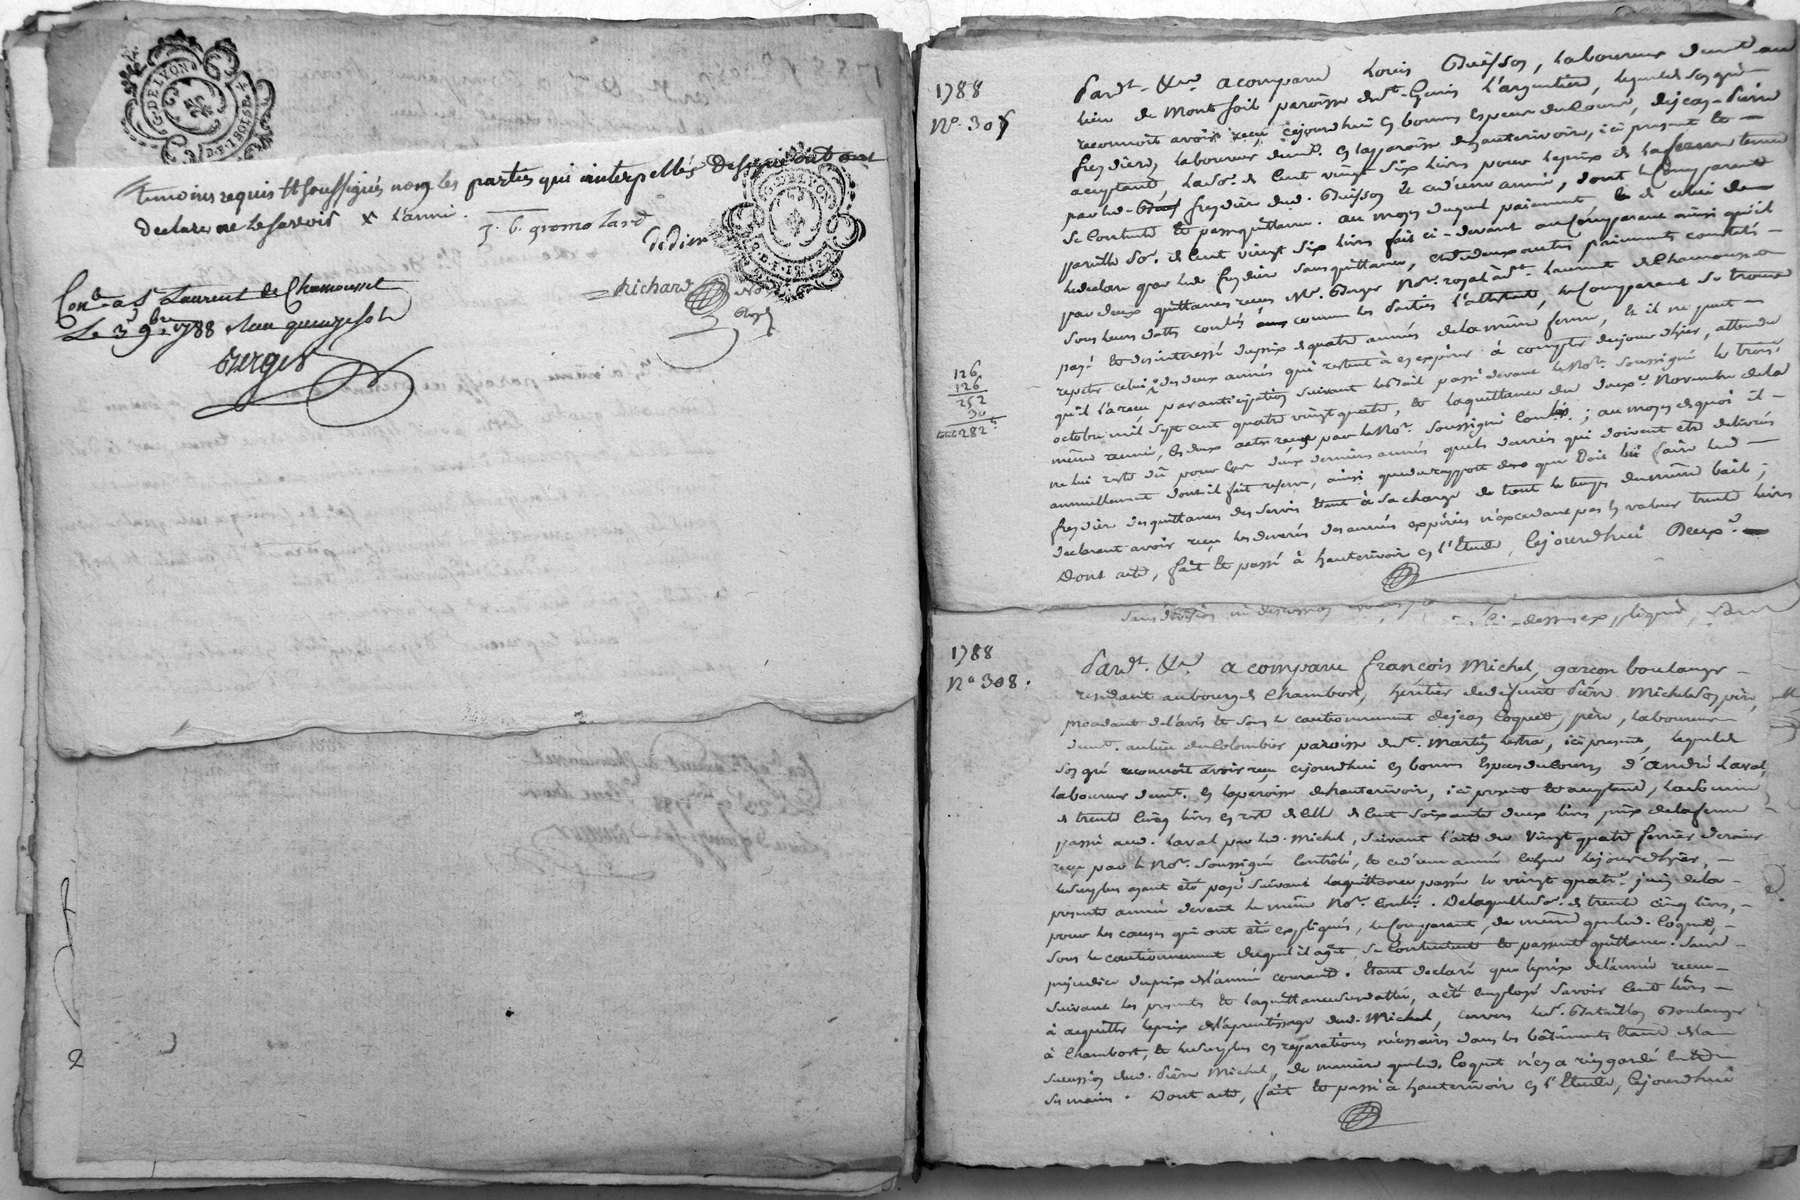 G. DE LYON
témoins requis et soussignés non les parties qui interpellées de signer ont
déclaré ne le savoir
J. B. gromolard
didier
Richard
Con.lé a St Laurent de Chamousset
Le 3 9bre 1788 Reçu quinze sols
Berger
1788
No. 307
Pard.t &c.a a comparu Louis Buisson, laboureur dem.t au
lieu de Montfoil paroisse de St. Genis l'argentiere, lequel de son gré
reconnoit avoir reçu cejourd'hui en bonnes especes de cours, de jean-Pierre
freydiere, laboureur dem.t en la paroisse de hauterivoire, ici present et
acceptant, la so.e de cent vingt six livres pour le prix de la ferme tenue
par led. freydiere dud. Buisson et ce d'une année, dont le comparant
se contente et passe quittance. au moyen du quel paiement et de celui de
pareille so.e de cent vingt six livres fait ci-devant au comparant ainsi qu'il
le declare par led. freydiere sans quittance, et de deux autres paiements constatés
par deux quittances reçues Me. Berger No.re royal à St. Laurent de Chamousset
sous leurs dattes controlées comme les parties l'attestent, le comparant se trouve
payé et desinteressé du prix de quatre années de la même ferme, et il ne peut
repeter celui des deux années qui restent à expirer à compter du jour d'hier, attendu
qu'il l'a reçu par anticipation suivant le bail passé devant le No.re soussigné le trois
octobre mil sept cent quatre vingt quatre, et la quittance du deux novembre de la
même année, les deux actes reçus par le No.re soussigné control.és; au moyen de quoi il
ne lui reste dû pour les deux dernieres années que les denrées qui doivent être delivrées
annuellement dont il fait reserve, ainsi que du rapport de ce que doit lui faire led.
freydiere des quittances des servis étant à sa charge de tout le temps du même bail;
declarant avoir reçu les denrées des années expirées n'excedant pas en valeur trente livres
Dont acte, fait et passé à hauterivoire en l'Etude, cejourd'hui Deux
126
126
252
30
total 282
1788
No 308.
Pard.t &c.a a comparu françois Michel, garçon boulanger
residant au bourg de Chambost, héritier de defunt Pierre Michel son père,
procedant de l'avis et sous le cautionnement de jean Coquet, père, laboureur
dem.t au lieu du Colombier paroisse de St. Martin lestra, ici present, lequel de
son gré reconnoit avoir reçu cejourd'hui en bonnes especes de cours d'andré Laval,
laboureur dem.t en la paroisse de hauterivoire, ici present et acceptant, la somme
de trente cinq livres en reste de celle de cent soixante deux livres prix de la ferme
passée aud. Laval par led. Michel, suivant l'acte du vingt quatre fevrier dernier
reçu par le No.re soussigné controlé, et ce d'une année echue le jour d'hier,
le surplus ayant été payé suivant la quittance passée le vingt quatre juin de la
presente année devant le même No.re cont.é. De laquelle so.e de trente cinq livres,
pour les causes qui ont été expliquées, le comparant, de même que led. Coquet,
sous le cautionnement duquel il agit, se contentent et passent quittance. sans
prejudice du prix de l'année courante. étant declaré que le prix de l'année reçue
suivant les presentes et la quittance susdattée, a été employé savoir cent livres
à acquitter le prix de l'aprentissage dud. Michel, envers le Sr. Bataillon Boulanger
à Chambost, et le surplus en reparations nécessaires dans les bâtiments étant de la
succession dud. Pierre Michel, de maniere que led. Coquet n'en a rien gardé entre
ses mains. Dont acte, fait et passé à hauterivoire en l'Etude, cejourd'hui